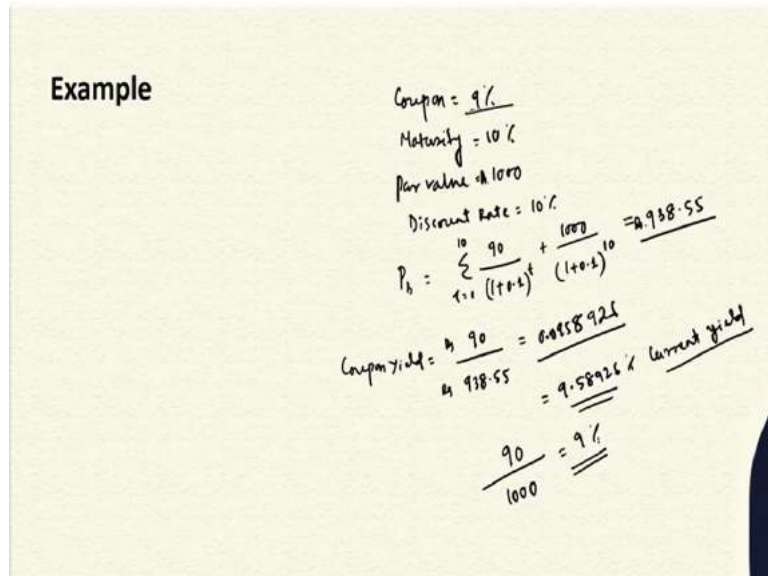 Example
Coupon = 9%
Maturity = 10%
Par value = Rs 1000
Discount Rate = 10%
P_b = Σ_{t=1}^{10} 90/(1+0.1)^t + 1000/(1+0.1)^10 = Rs. 938.55
Coupon yield = Rs 90 / Rs 938.55 = 0.0958926
= 9.58926% Current yield
90/1000 = 9%